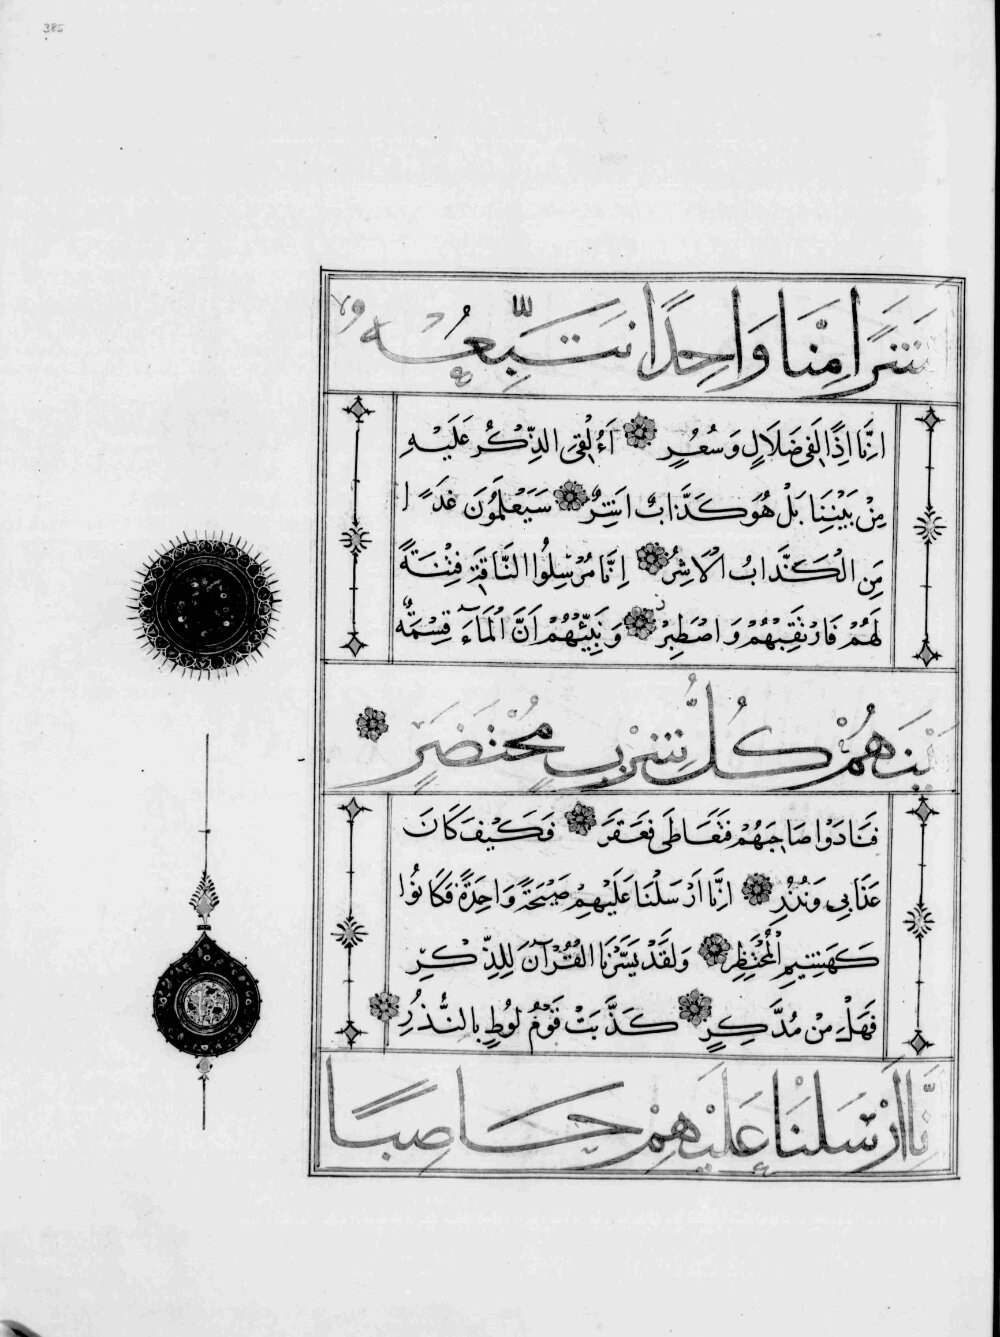 385
بَشَرًا مِنَّا وَاحِدًا نَتَّبِعُهُ
اِنَّا اِذًا لَفِي ضَلَالٍ وَسُعُرٍ ءَاُلْقِيَ الذِّكْرُ عَلَيْهِ
مِنْ بَيْنِنَا بَلْ هُوَ كَذَّابٌ اَشِرٌ سَيَعْلَمُونَ غَدًا
مَنِ الْكَذَّابُ الْاَشِرُ اِنَّا مُرْسِلُوا النَّاقَةِ فِتْنَةً
لَهُمْ فَارْتَقِبْهُمْ وَاصْطَبِرْ وَنَبِّئْهُمْ اَنَّ الْمَآءَ قِسْمَةٌ
بَيْنَهُمْ كُلُّ شِرْبٍ مُحْتَضَرٌ
فَنَادَوْا صَاحِبَهُمْ فَتَعَاطَى فَعَقَرَ فَكَيْفَ كَانَ
عَذَابِي وَنُذُرِ اِنَّا اَرْسَلْنَا عَلَيْهِمْ صَيْحَةً وَاحِدَةً فَكَانُوا
كَهَشِيمِ الْمُحْتَظِرِ وَلَقَدْ يَسَّرْنَا الْقُرْآنَ لِلذِّكْرِ
فَهَلْ مِنْ مُدَّكِرٍ كَذَّبَتْ قَوْمُ لُوطٍ بِالنُّذُرِ
اِنَّا اَرْسَلْنَا عَلَيْهِمْ حَاصِبًا